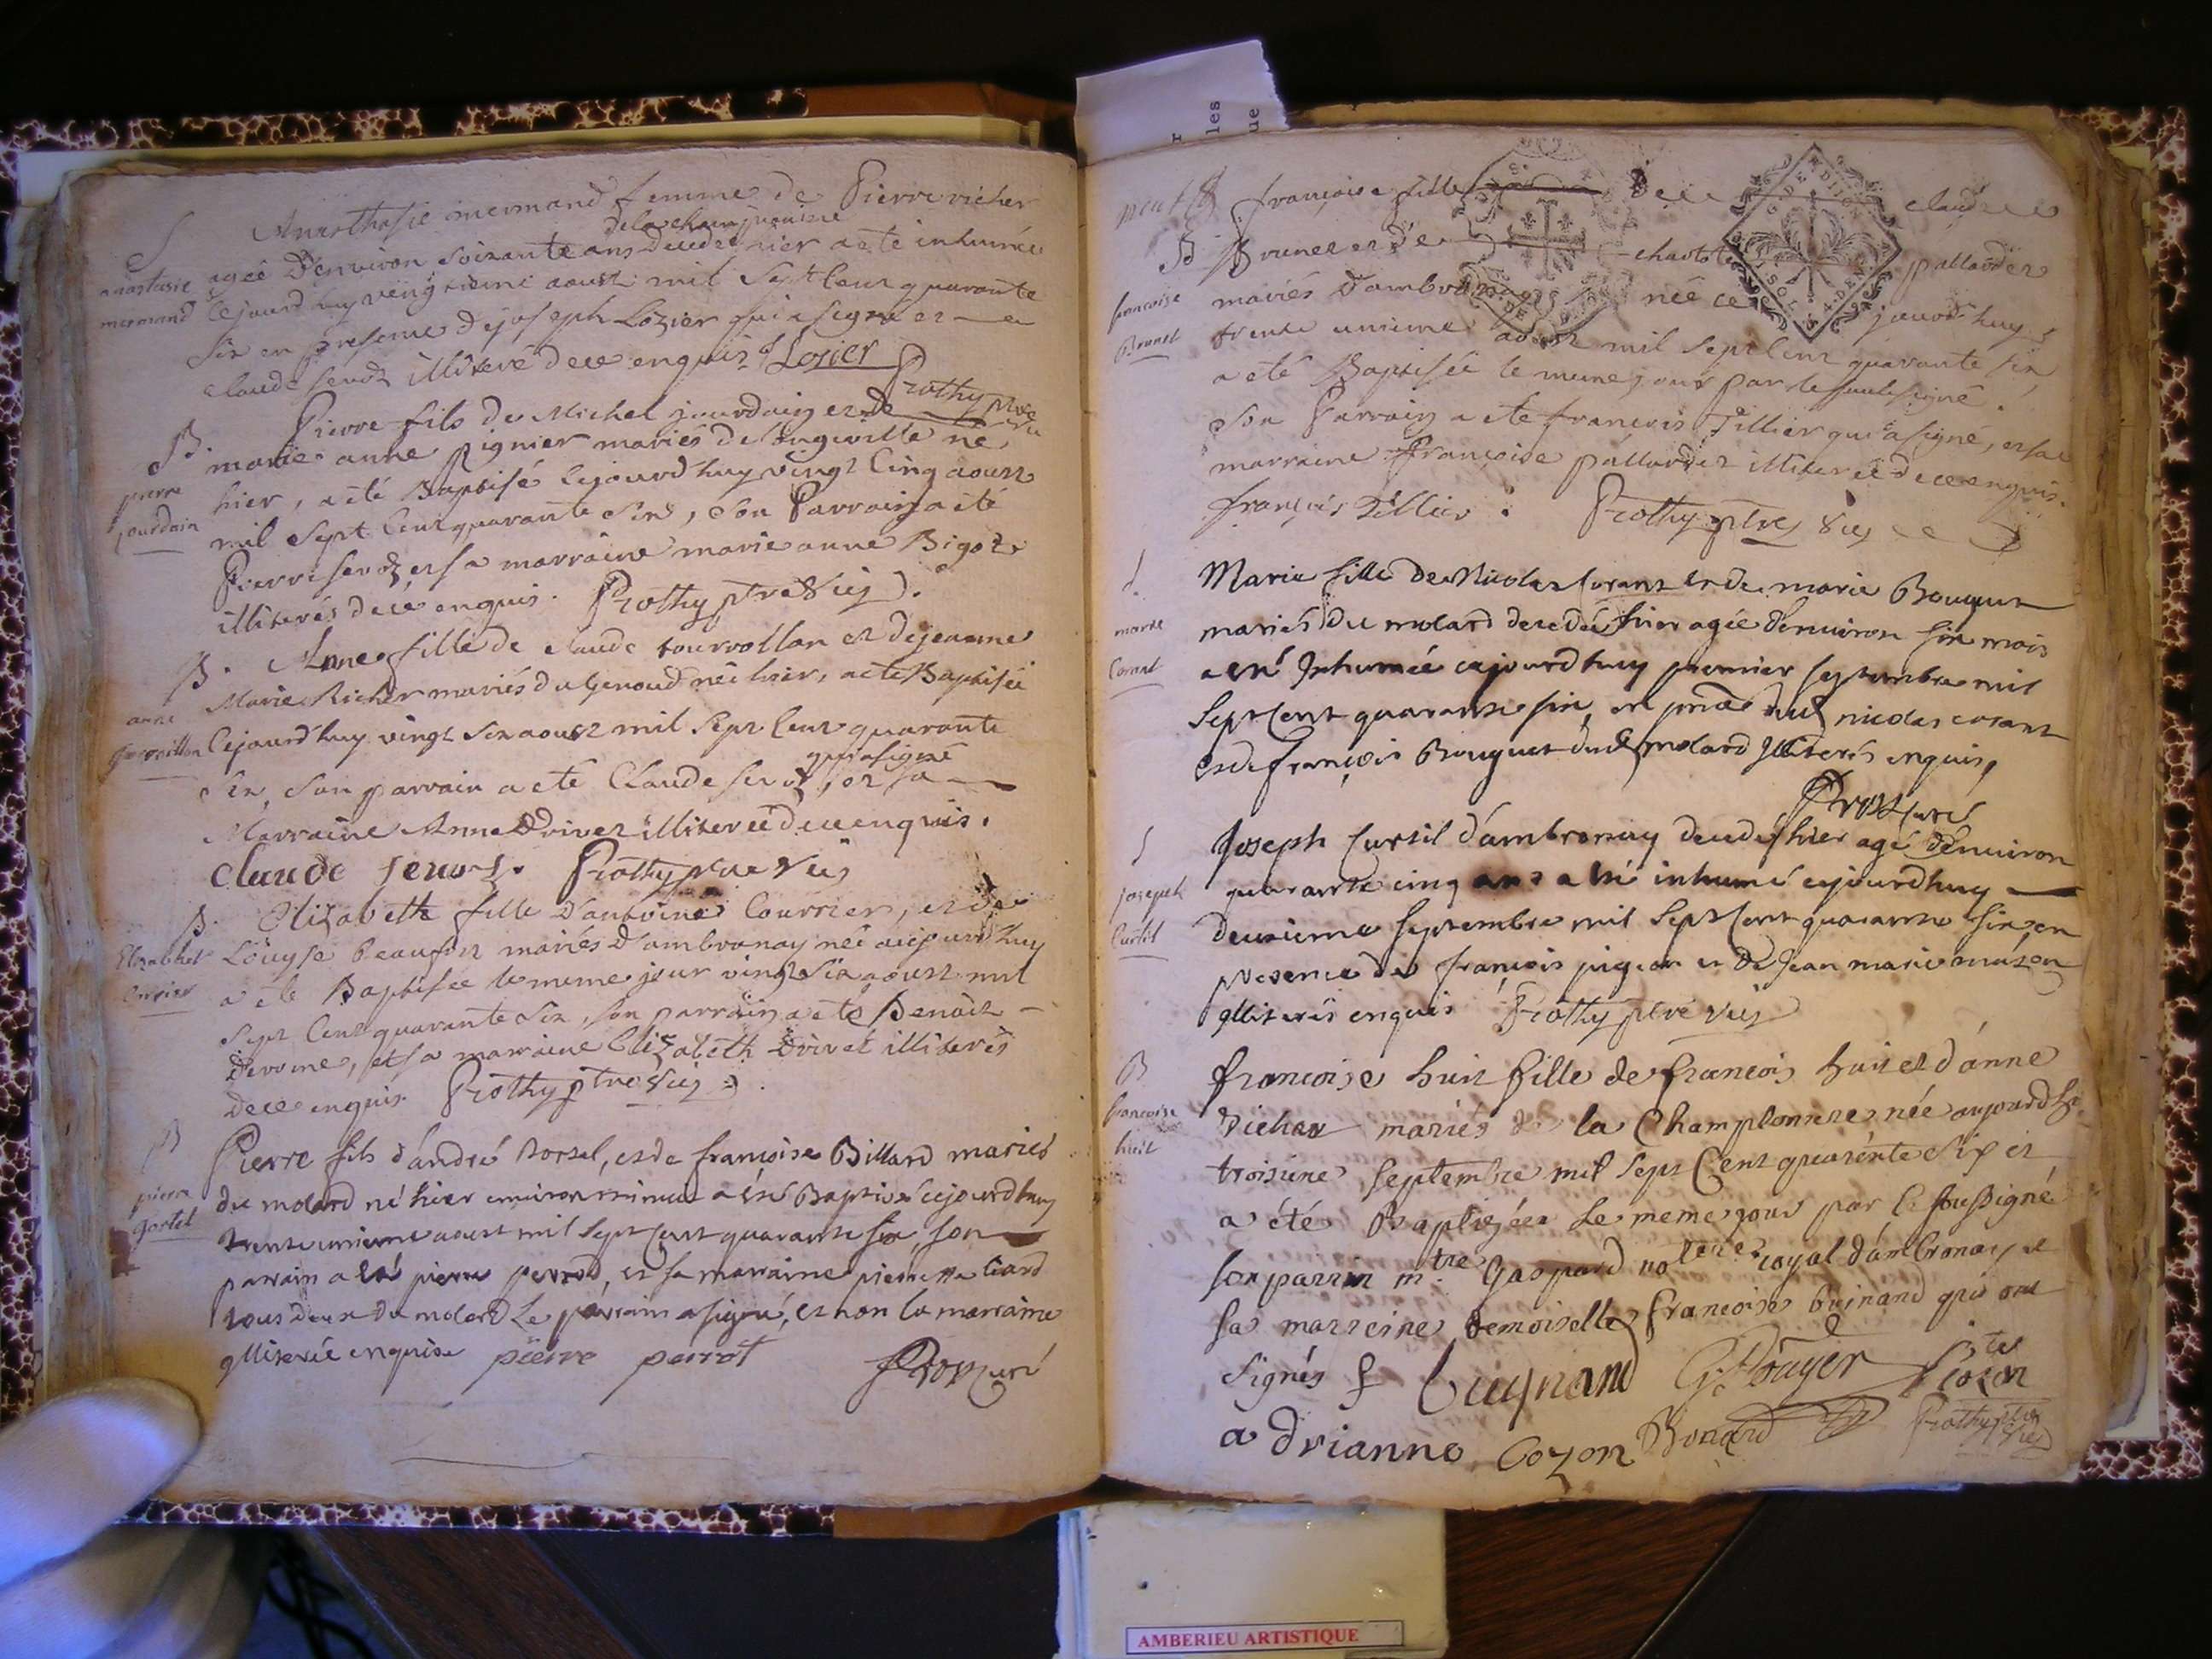 S
Anasthasie mermand femme de Pierre richer
de la champtonniere
anastasie
mermand
agée d'environ soixante ans decedée hier a été inhumée
cejourd'huy aoust mil sept cent quarante
six en presence de joseph Lozier qui a signé et
claude illiteré de ce enquis J Losier
Prothy ptre vic
B.
pierre
jourdain
Pierre fils de Michel jourdain et de
marie anne Pignier mariés de longeville né
hier, a été Baptisé cejourd'huy vingt cinq aoust
mil sept cent quarante six, son Parrain a été
Pierre et sa marraine marie anne Bigot
illiterés de ce enquis. Prothy ptre Vic
B.
anne
Anne fille de claude tournollon et de jeanne
Marie Richer mariés du Genoud née hier, a été Baptisée
cejourd'huy vingt six aoust mil sept cent quarante
qui a signé
six, son parrain a été Claude, et sa
Marraine Anne Drivet illiterée de ce enquis.
Claude Prothy ptre Vic
B.
Elizabhet
Courier
Elizabeth fille d'antoine Courrier, et de
Louyse beaufort mariés d'ambronay née aujourd'huy
a été Baptisée le meme jour vingt six aoust mil
sept cent quarante six, son parrain a été Benoit
Derome, et sa marraine Elizabeth Drivet illiterés
de ce enquis. Prothy ptre Vic
B
pierre
gortel
Pierre fils d'andré, et de françoise Billard mariés
du molard né hier environ minuit a été Baptisé cejourd'huy
trente unieme aoust mil sept cent quarante six, son
parrain a été pierre perrod, et sa marraine pierrette
tous deux du molard Le parrain a signé, et non la marraine
illiterée enquise pierre perrot curé
neuf
B
francoise
Brunet
françoise fille de claude
Brunet et de pallordet
mariés d'ambronay née ce jourd'huy
trente unieme aoust mil sept cent quarante six
a été Baptisée le meme jour par le soubsigné.
son Parrain a été francois Tillier qui a signé, et sa
marraine Françoise pallordet illiterée de ce enquis.
françois Tillier. Prothy ptre Vic
S.
marie
Corant
Marie fille de Nicolas Corant et de marie Bouquet
mariés du molard decedée hier agée d'environ six mois
a été Inhumée cejourd'huy premier septembre mil
sept cent quarante six, en dud nicolas corant
et de françois Bouquet dud molard Illiterés enquis,
curé
S
joseph
Curtil
Joseph Curtil d'ambronay decedé hier agé d'environ
quarante cinq ans a été inhumé cejourd'huy
deuxieme septembre mil sept cent quarante six en
presence de françois pigeon et de Jean marie
illiterés enquis Prothy ptre Vic
B
francoise
huit
francoise huit fille de francois huit et d'anne
Richer mariés de la Champtonniere née aujourd'huy
troisieme septembre mil sept cent quarente six et
a été Baptizée le meme jour par le soussigné
son parrin mtre Gaspard notaire royal d'ambronay et
sa marreine Demoiselle francoise Guinand qui ont
signés f Guynand G Cozon
adrianne Cozon Bonard Prothy ptre Vic
r
les
ue
AMBERIEU ARTISTIQUE